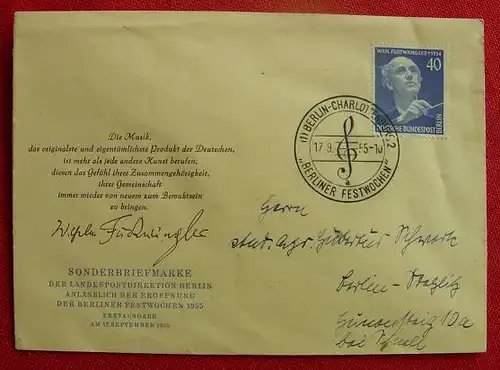 Die Musik,
das originalste und eigentümlichste Produkt der Deutschen,
ist mehr als jede andere Kunst berufen,
diesen das Gefühl ihrer Zusammengehörigkeit,
ihrer Gemeinschaft
immer wieder von neuem zum Bewußtsein
zu bringen.
Wilhelm Furtwängler
SONDERBRIEFMARKE
DER LANDESPOSTDIREKTION BERLIN
ANLÄSSLICH DER ERÖFFNUNG
DER BERLINER FESTWOCHEN 1955
ERSTAUSGABE
AM 17. SEPTEMBER 1955
WILH. FURTWÄNGLER † 1954
40
DEUTSCHE BUNDESPOST
BERLIN
(1) BERLIN-CHARLOTTENBURG 2
17.9. 55-10
„BERLINER FESTWOCHEN"
Herrn
stud. agr. Hubertus
Berlin-Steglitz
10a
bei